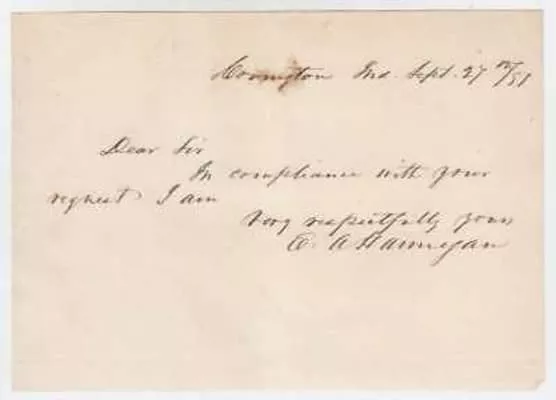 Covington Ind. Sept. 27th/51
Dear Sir
In compliance with your
request I am
Very respectfully yours
E. A. Hannegan